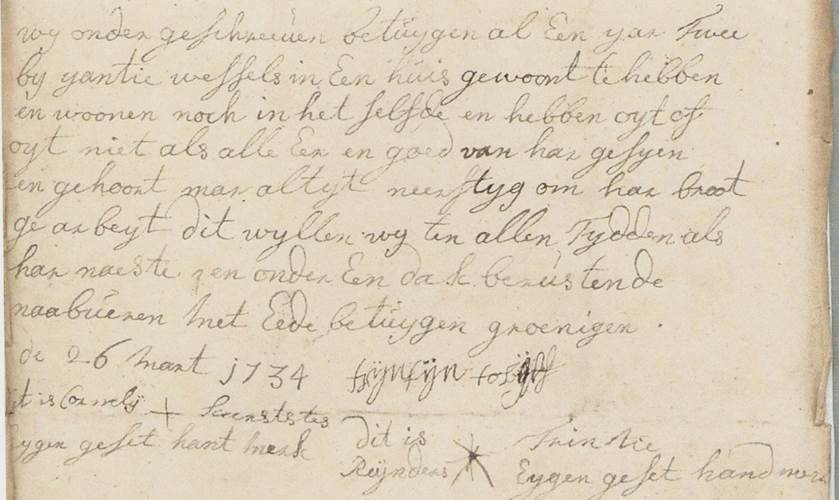 wy onder geschreeven betuygen al Een yar Twee
by yantie wessels in Een huis gewoont te hebben
en woonen noch in het selfde en hebben oyt of
oyt niet als alle Eer en goed van har gesyen
en gehoort mar altyt neerstyg om har broot
ge arbeyt dit wyllen wy ten allen Tydden als
har naeste en onder Een dak berustende
naabueren met Eede betuygen groenigen .
de 26 mart 1734
dit is Cornelÿ +
Eygen geset hant merk
dit is Trintie
Reÿnders Eygen geset hand merk